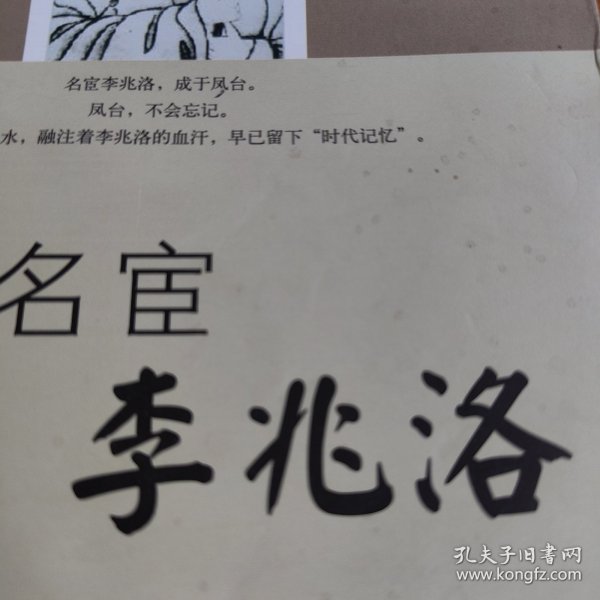 名宦李兆洛，成于凤台。
凤台，不会忘记。
水，融注着李兆洛的血汗，早已留下“时代记忆”。
名宦
李兆洛
孔夫子旧书网
www.kongfz.com